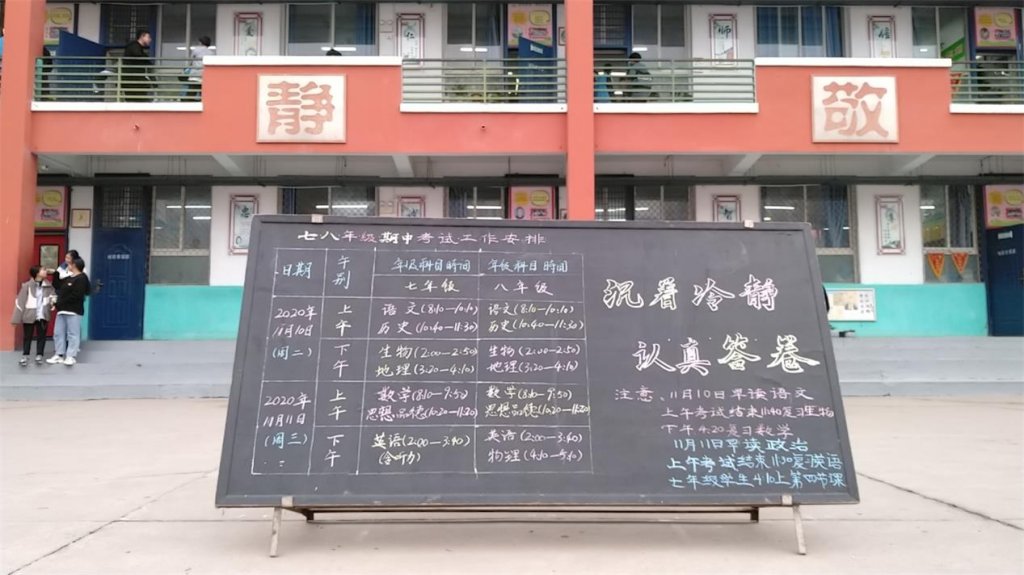 静
敬
七八年级期中考试工作安排
日期 午别 年级科目时间 年级科目时间
七年级 八年级
2020年11月10日(周二) 上午 语文(8:10—10:10) 语文(8:10—10:10)
历史(10:40—11:30) 历史(10:40—11:30)
下午 生物(2:00—2:50) 生物(2:00—2:50)
地理(3:20—4:10) 地理(3:20—4:10)
2020年11月11日(周三) 上午 数学(8:10—9:50) 数学(8:10—9:50)
思想品德(10:20—11:20) 思想品德(10:20—11:20)
下午 英语(2:00—3:40) 英语(2:00—3:40)
(含听力) 物理(4:10—5:10)
沉着冷静
认真答卷
注意、11月10日早读语文
上午考试结束11:40复习生物
下午4:20复习数学
11月11日早读政治
上午考试结束11:30复习英语
七年级学生4:10上第四节课